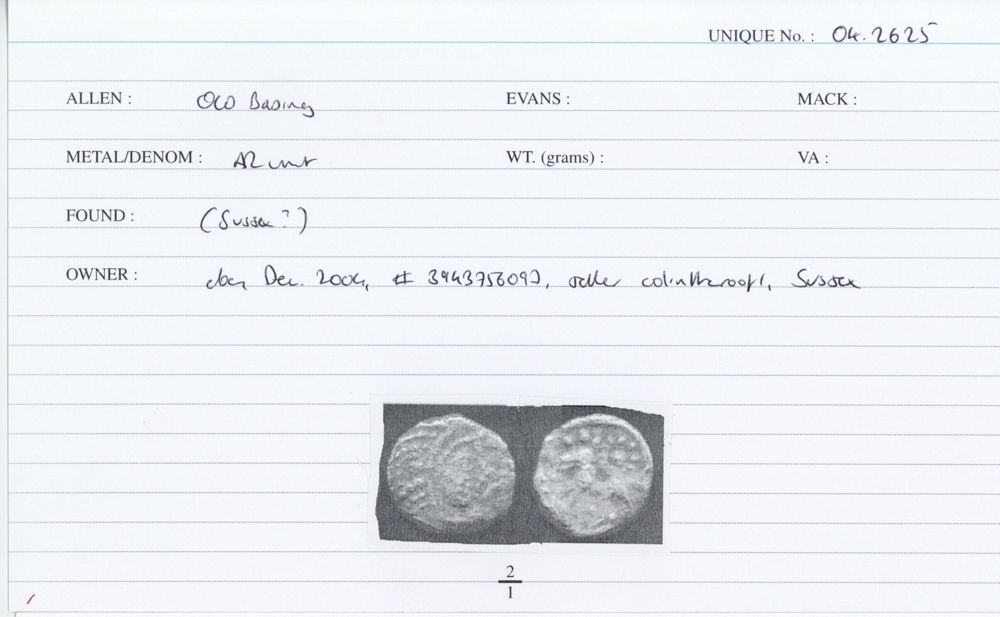 UNIQUE No. : 04.2625
ALLEN : Old Basing EVANS : MACK :
METAL/DENOM : AR unit WT. (grams) : VA :
FOUND : (Sussex?)
OWNER : ebay Dec. 2004, # 3943756092, seller Sussex
2
1